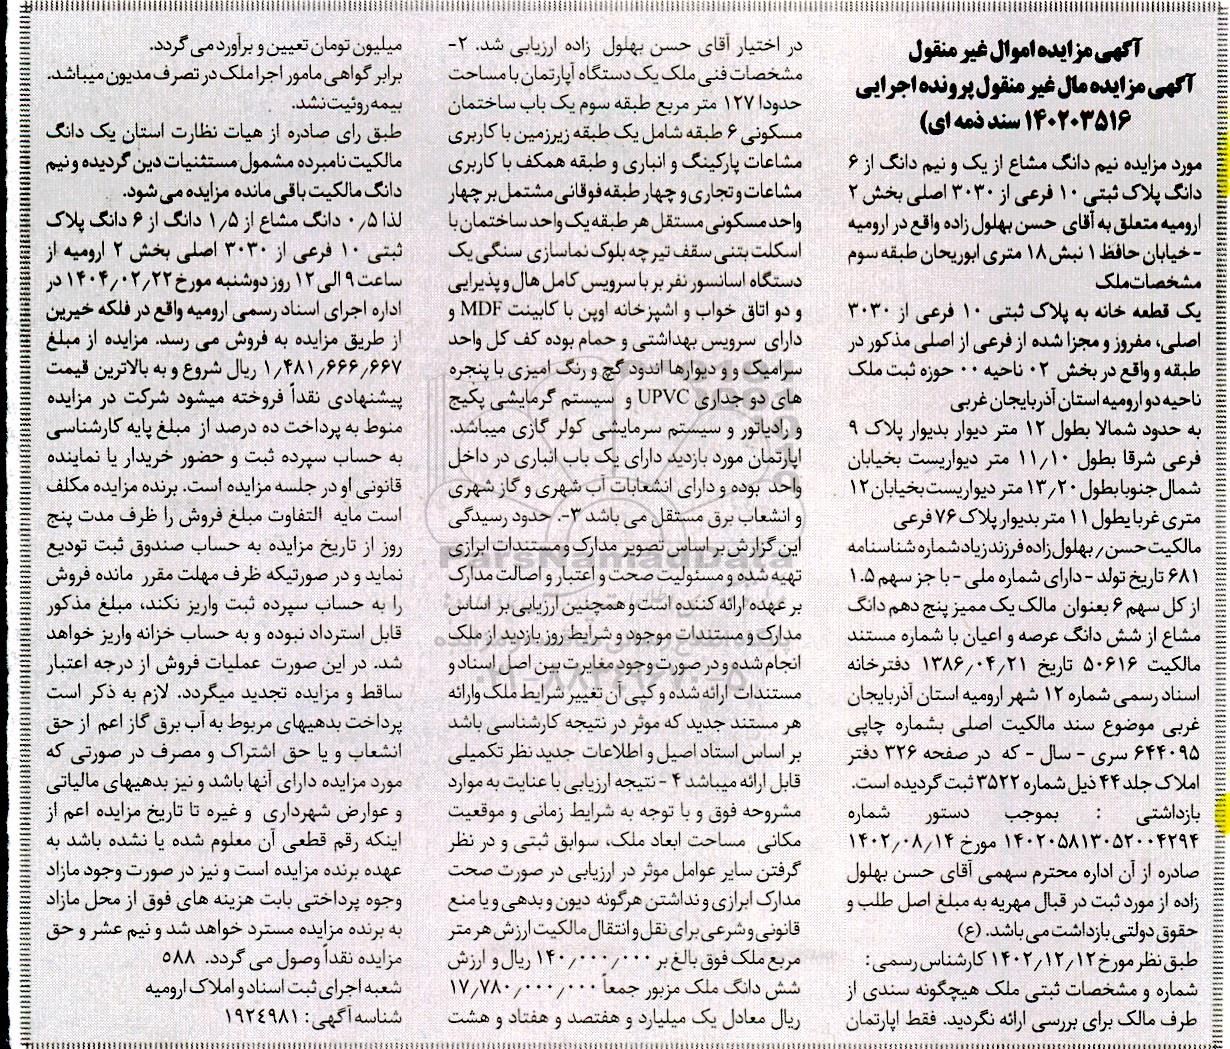 آگهی مزایده اموال غیر منقول
آگهی مزایده مال غیر منقول پرونده اجرایی
۱۴۰۲۰۳۵۱۶ سند ذمه ای)
مورد مزایده نیم دانگ مشاع از یک و نیم دانگ از ۶
دانگ پلاک ثبتی ۱۰ فرعی از ۳۰۳۰ اصلی بخش ۲
ارومیه متعلق به آقای حسن بهلول زاده واقع در ارومیه
- خیابان حافظ ۱ نبش ۱۸ متری ابوریحان طبقه سوم
مشخصات ملک
یک قطعه خانه به پلاک ثبتی ۱۰ فرعی از ۳۰۳۰
اصلی، مفروز و مجزا شده از فرعی از اصلی مذکور در
طبقه و واقع در بخش ۰۲ ناحیه ۰۰ حوزه ثبت ملک
ناحیه دو ارومیه استان آذربایجان غربی
به حدود شمالا بطول ۱۲ متر دیوار بدیوار پلاک ۹
فرعی شرقا بطول ۱۱٫۱۰ متر دیواریست بخیابان
شمال جنوبا بطول ۱۳٫۲۰ متر دیواریست بخیابان ۱۲
متری غربا یطول ۱۱ متر بدیوار پلاک ۷۶ فرعی
مالکیت حسن / بهلول زاده فرزند زیاد شماره شناسنامه
۶۸۱ تاریخ تولد - دارای شماره ملی - با جز سهم ۱.۵
از کل سهم ۶ بعنوان مالک یک ممیز پنج دهم دانگ
مشاع از شش دانگ عرصه و اعیان با شماره مستند
مالکیت ۵۰۶۱۶ تاریخ ۱۳۸۶٫۰۴٫۲۱ دفترخانه
اسناد رسمی شماره ۱۲ شهر ارومیه استان آذربایجان
غربی موضوع سند مالکیت اصلی بشماره چاپی
۶۴۴۰۹۵ سری - سال - که در صفحه ۳۲۶ دفتر
املاک جلد ۴۴ ذیل شماره ۳۵۲۲ ثبت گردیده است.
بازداشتی : بموجب دستور شماره
۱۴۰۲۰۵۸۱۳۰۵۲۰۰۴۲۹۴ مورخ ۱۴۰۲٫۰۸٫۱۴
صادره از آن اداره محترم سهمی آقای حسن بهلول
زاده از مورد ثبت در قبال مهریه به مبلغ اصل طلب و
حقوق دولتی بازداشت می باشد. (ع)
طبق نظر مورخ ۱۴۰۲٫۱۲٫۱۲ کارشناس رسمی:
شماره و مشخصات ثبتی ملک هیچگونه سندی از
طرف مالک برای بررسی ارائه نگردید. فقط اپارتمان
در اختیار آقای حسن بهلول زاده ارزیابی شد. ۲-
مشخصات فنی ملک یک دستگاه آپارتمان با مساحت
حدودا ۱۲۷ متر مربع طبقه سوم یک باب ساختمان
مسکونی ۶ طبقه شامل یک طبقه زیرزمین با کاربری
مشاعات پارکینگ و انباری و طبقه همکف با کاربری
مشاعات و تجاری و چهار طبقه فوقانی مشتمل بر چهار
واحد مسکونی مستقل هر طبقه یک واحد ساختمان با
اسکلت بتنی سقف تیرچه بلوک نماسازی سنگی یک
دستگاه اسانسور نفر بر با سرویس کامل هال و پذیرایی
و دو اتاق خواب و اشپزخانه اوپن با کابینت MDF و
دارای سرویس بهداشتی و حمام بوده کف کل واحد
سرامیک و و دیوارها اندود گچ و رنگ امیزی با پنجره
های دو جداری UPVC و سیستم گرمایشی پکیج
و رادیاتور و سیستم سرمایشی کولر گازی میباشد.
اپارتمان مورد بازدید دارای یک باب انباری در داخل
واحد بوده و دارای انشعابات آب شهری و گاز شهری
و انشعاب برق مستقل می باشد ۳-. حدود رسیدگی
این گزارش بر اساس تصویر مدارک و مستندات ابرازی
تهیه شده و مسئولیت صحت و اعتبار و اصالت مدارک
بر عهده ارائه کننده است و همچنین ارزیابی بر اساس
مدارک و مستندات موجود و شرایط روز بازدید از ملک
انجام شده و در صورت وجود مغایرت بین اصل اسناد و
مستندات ارائه شده و کپی آن تغییر شرایط ملک وارائه
هر مستند جدید که موثر در نتیجه کارشناسی باشد
بر اساس استاد اصیل و اطلاعات جدید نظر تکمیلی
قابل ارائه میباشد ۴ - نتیجه ارزیابی با عنایت به موارد
مشروحه فوق و با توجه به شرایط زمانی و موقعیت
مکانی مساحت ابعاد ملک، سوابق ثبتی و در نظر
گرفتن سایر عوامل موثر در ارزیابی در صورت صحت
مدارک ابرازی و نداشتن هرگونه دیون و بدهی و یا منع
قانونی و شرعی برای نقل و انتقال مالکیت ارزش هر متر
مربع ملک فوق بالغ بر ۱۴۰٫۰۰۰٫۰۰۰ ریال و ارزش
شش دانگ ملک مزبور جمعاً ۱۷٫۷۸۰٫۰۰۰٫۰۰۰
ریال معادل یک میلیارد و هفتصد و هفتاد و هشت
میلیون تومان تعیین و برآورد می گردد.
برابر گواهی مامور اجرا ملک در تصرف مدیون میباشد.
بیمه روئیت نشد.
طبق رای صادره از هیات نظارت استان یک دانگ
مالکیت نامبرده مشمول مستثنیات دین گردیده و نیم
دانگ مالکیت باقی مانده مزایده می شود.
لذا ۰٫۵ دانگ مشاع از ۱٫۵ دانگ از ۶ دانگ پلاک
ثبتی ۱۰ فرعی از ۳۰۳۰ اصلی بخش ۲ ارومیه از
ساعت ۹ الی ۱۲ روز دوشنبه مورخ ۱۴۰۴٫۰۲٫۲۲ در
اداره اجرای اسناد رسمی ارومیه واقع در فلکه خیرین
از طریق مزایده به فروش می رسد. مزایده از مبلغ
۱٫۴۸۱٫۶۶۶٫۶۶۷ ریال شروع و به بالاترین قیمت
پیشنهادی نقداً فروخته میشود شرکت در مزایده
منوط به پرداخت ده درصد از مبلغ پایه کارشناسی
به حساب سپرده ثبت و حضور خریدار یا نماینده
قانونی او در جلسه مزایده است. برنده مزایده مکلف
است مابه التفاوت مبلغ فروش را ظرف مدت پنج
روز از تاریخ مزایده به حساب صندوق ثبت تودیع
نماید و در صورتیکه ظرف مهلت مقرر مانده فروش
را به حساب سپرده ثبت واریز نکند، مبلغ مذکور
قابل استرداد نبوده و به حساب خزانه واریز خواهد
شد. در این صورت عملیات فروش از درجه اعتبار
ساقط و مزایده تجدید میگردد. لازم به ذکر است
پرداخت بدهیهای مربوط به آب برق گاز اعم از حق
انشعاب و یا حق اشتراک و مصرف در صورتی که
مورد مزایده دارای آنها باشد و نیز بدهیهای مالیاتی
و عوارض شهرداری و غیره تا تاریخ مزایده اعم از
اینکه رقم قطعی آن معلوم شده یا نشده باشد به
عهده برنده مزایده است و نیز در صورت وجود مازاد
وجوه پرداختی بابت هزینه های فوق از محل مازاد
به برنده مزایده مسترد خواهد شد و نیم عشر و حق
مزایده نقداً وصول می گردد. ۵۸۸
شعبه اجرای ثبت اسناد و املاک ارومیه
شناسه آگهی: ۱۹۲۴۹۸۱
ParsNamadData